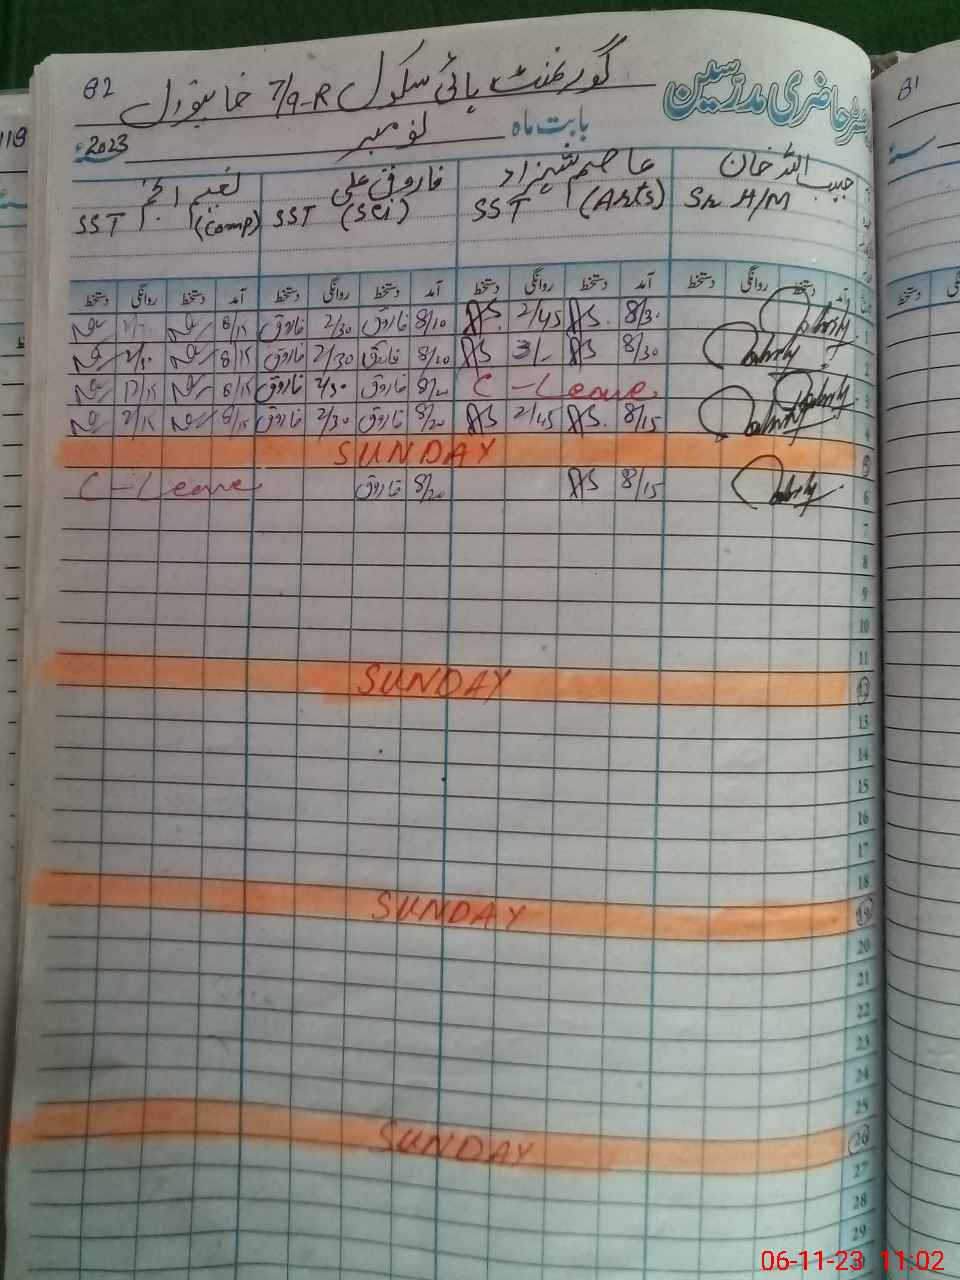 82 گورنمنٹ ہائی سکول 7/9-R خانیوال رجسٹر حاضری مدرسین
2023ء نومبر بابت ماہ
حبیب اللہ خان عاصم شہزاد فاروق علی نعیم انجم
Sr H/M SST (Arts) SST (Sci) SST (Comp)
آمد دستخط روانگی دستخط آمد دستخط روانگی دستخط آمد دستخط روانگی دستخط آمد دستخط روانگی دستخط
1 8/30 AS. 2/45 AS. 8/10 فاروق 2/30 فاروق 8/15
2 8/30 AS 3/- AS 8/20 فاروق 2/30 فاروق 8/15
3 C-Leave 8/20 فاروق 2/30 فاروق 8/15
4 8/15 AS. 2/45 AS. 8/20 فاروق 2/30 فاروق 8/15 2/15
5 SUNDAY
6 8/15 AS 8/20 فاروق C-Leave
7
8
9
10
11
12 SUNDAY
13
14
15
16
17
18
19 SUNDAY
20
21
22
23
24
25
26 SUNDAY
27
28
29
81
118
06-11-23 11:02